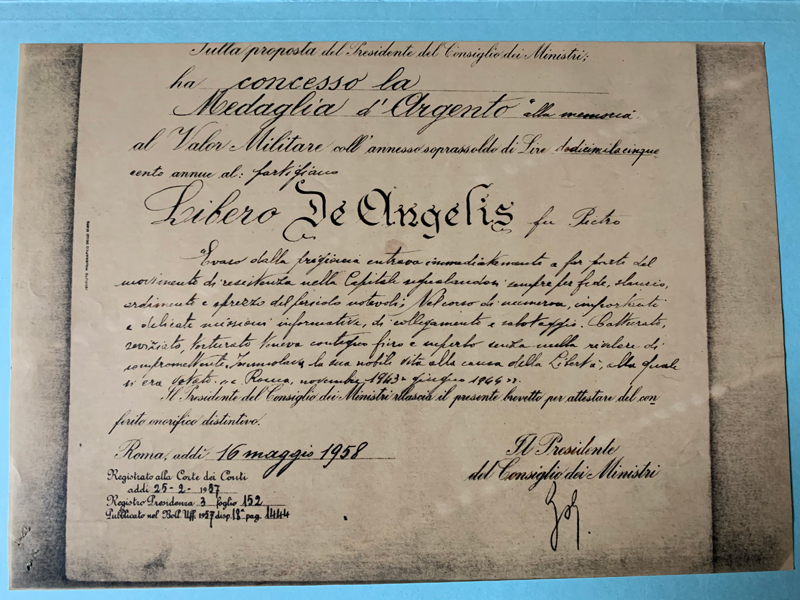 Sulla proposta del Presidente del Consiglio dei Ministri;
ha concesso la
Medaglia d'Argento "alla memoria"
al Valor Militare coll'annesso soprassoldo di Lire dodicimilacinque
cento annue al: partigiano
Libero De Angelis fu Pietro
"Evaso dalla prigionia entrava immediatamente a far parte del
movimento di resistenza nella Capitale segnalandosi sempre per fede, slancio,
ardimento e sprezzo del pericolo notevoli; Nel corso di numerose, importanti
e delicate missioni informative, di collegamento e sabotaggio. Catturato,
seviziato, torturato teneva contegno fiero e superbo senza nulla rivelare di
compromettente. Immolava la sua nobile vita alla causa della Libertà, alla quale
si era votato. Roma, novembre 1943 - giugno 1944".
Il Presidente del Consiglio dei Ministri rilascia il presente brevetto per attestare del con-
ferito onorifico distintivo.
Roma, addì 16 maggio 1958
Registrato alla Corte dei Conti
addì 25-2-1957
Registro Presidenza 3 foglio 152
Pubblicato nel Boll. Uff. 1957 disp. 18ª pag. 1444
Il Presidente
del Consiglio dei Ministri